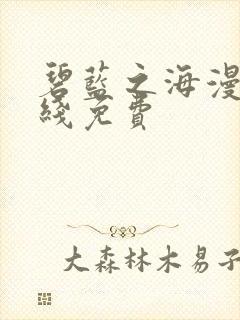 碧蓝之海漫
线免费
大森林木易子